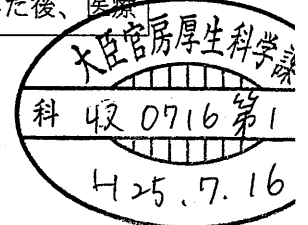 た後、医療
大臣官房厚生科学課
科 収 0716 第1
H25.7.16